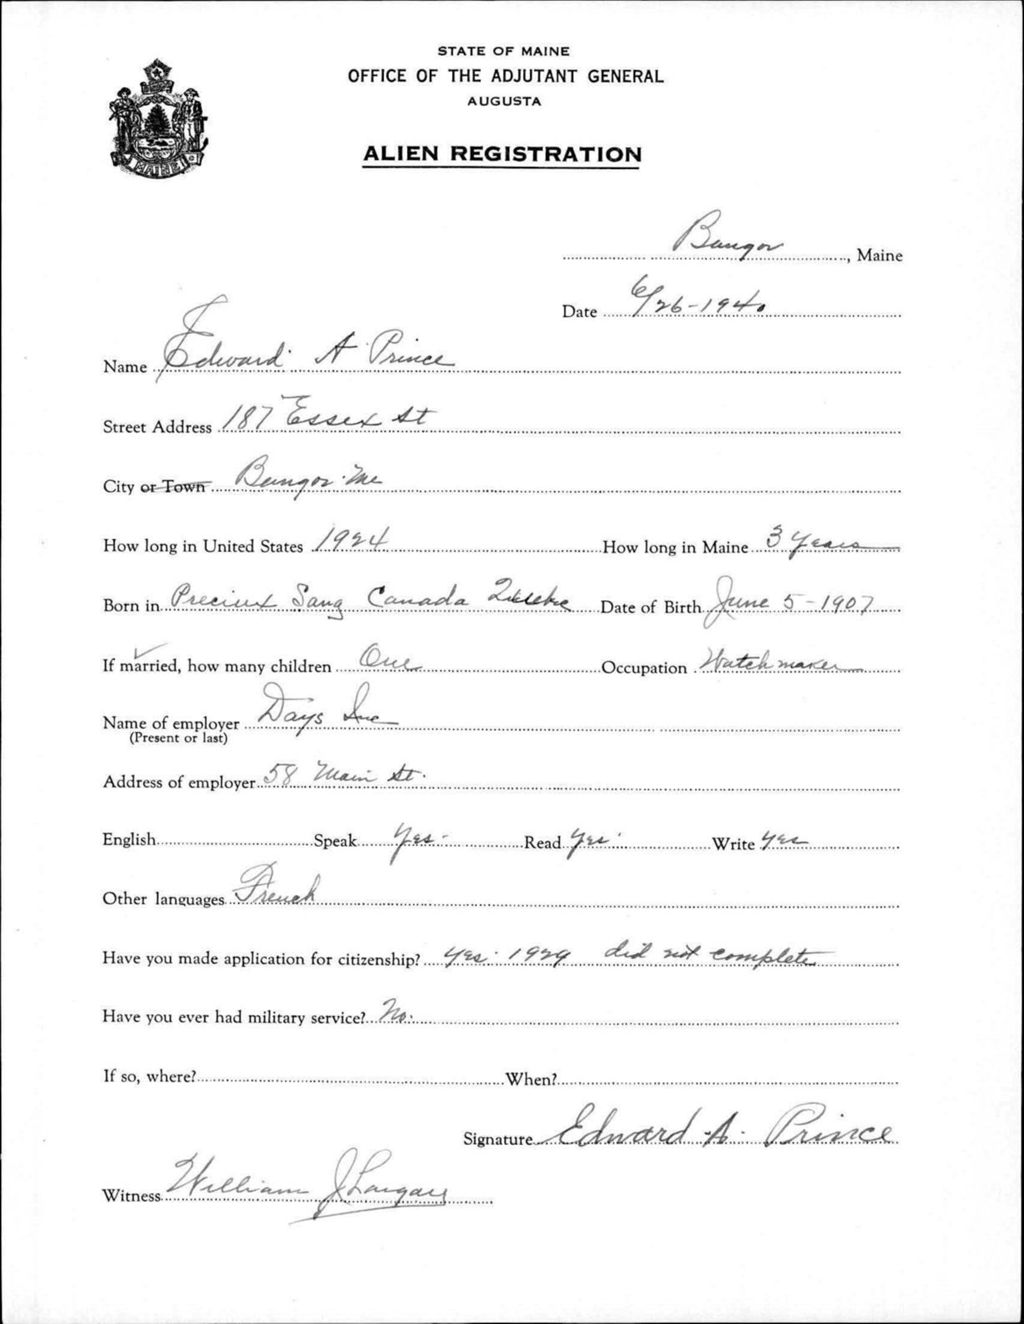 STATE OF MAINE
OFFICE OF THE ADJUTANT GENERAL
AUGUSTA
ALIEN REGISTRATION
MAINE
Bangor, Maine
Date 6/26-1940
Name Edward A Prince
Street Address 187 Essex St
City or Town Bangor Me
How long in United States 1924 How long in Maine 3 years
Born in Precieux Sang Canada Quebec Date of Birth June 5-1907
If married, how many children One Occupation Watchmaker
Name of employer Days Inc
(Present or last)
Address of employer 58 Main St.
English Speak Yes- Read Yes Write Yes
Other languages French
Have you made application for citizenship? Yes 1929 did not complete
Have you ever had military service? No.
If so, where? When?
Signature Edward A. Prince
Witness William J